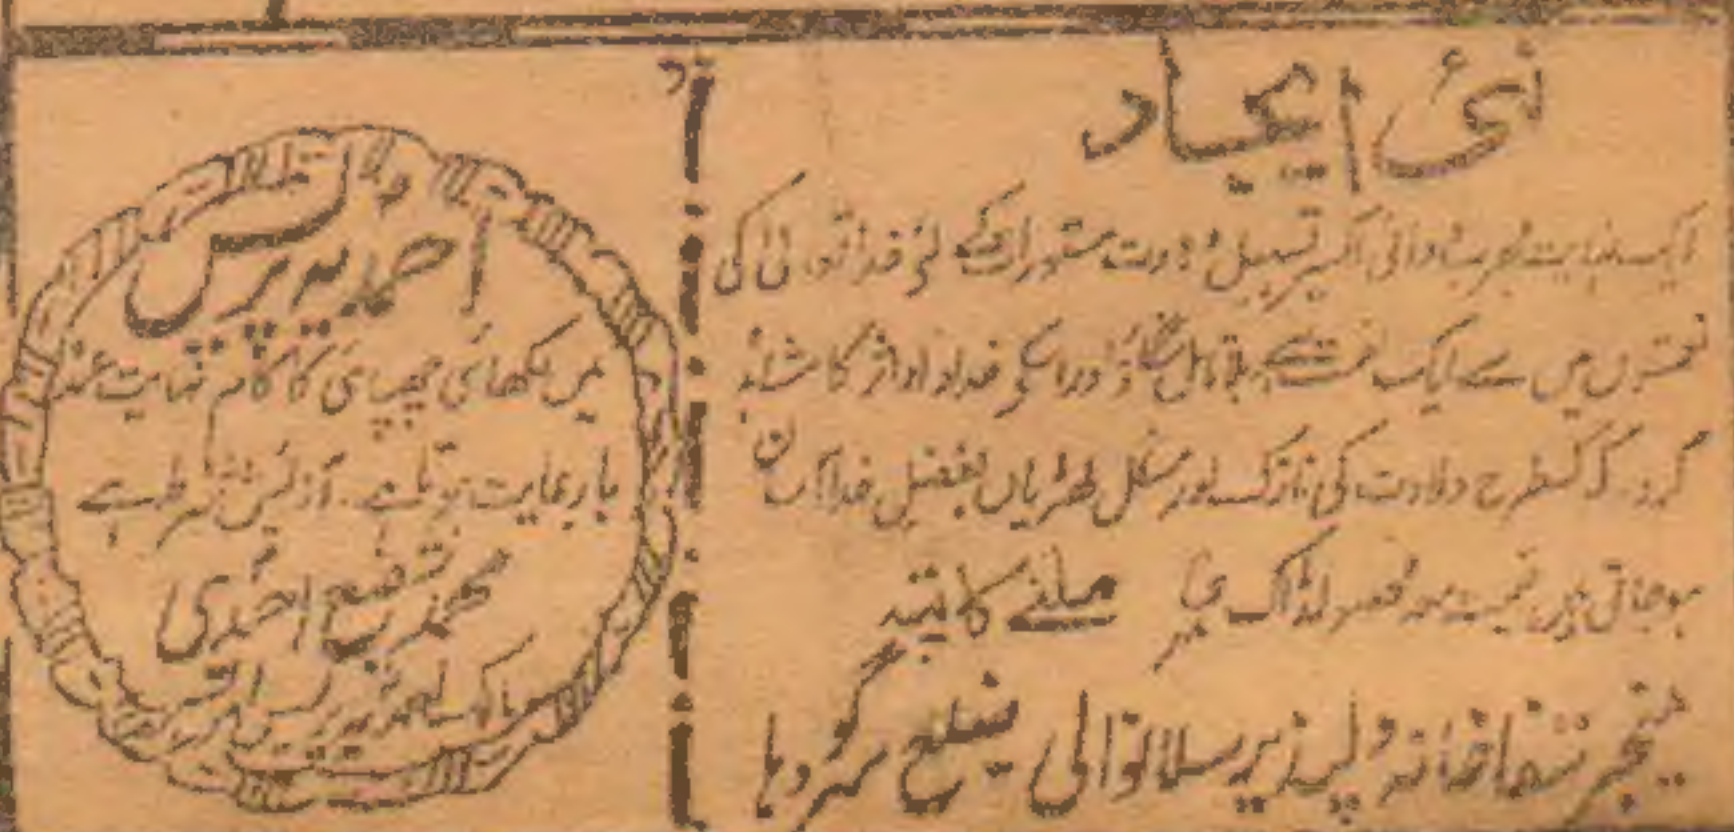 نئی ایجاد
ایک نہایت مجرب دوائی اکسیر تسہیل ولادت مستورات کے لئے خدا تعالیٰ کی
نعمتوں میں سے ایک نعمت ہے۔ بلا تامل منگاؤ اور اسکے خداداد اثر کا مشاہدہ
کرو۔ کہ کسطرح ولادت کی نازک اور مشکل گھڑیاں بفضل خدا آسان
ہوجاتی ہیں قیمت معہ محصولڈاک ملنے کا پتہ
منیجر شفاخانہ دلپذیر سلانوالی ضلع سرگودہا
احمدیہ پریس
میں لکھائی چھپائی کا کام نہایت عمدہ
بارعایت ہوتا ہے۔ آزمائش شرط ہے
محمد شفیع احمدی
مالک احمدیہ پریس